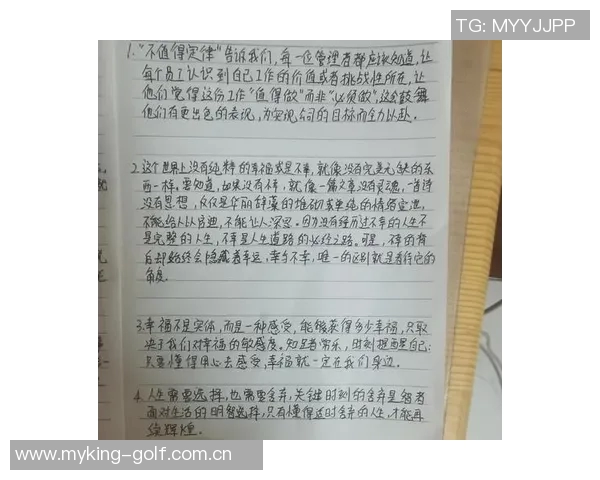 TG: MYYJJPP
1."不值得定律"告诉我们,每一位管理者都应该知道,让
每个员工认识到自己工作的价值或者挑战性所在,让
他们觉得这份工作"值得做"而非"必须做",这会鼓舞
他们有更出色的表现,为实现公司的目标而全力以赴。
2.这个世界上没有纯粹的幸福或是不幸,就像没有完美无缺的东
西一样。要知道,如果没有不幸,就像一篇文章没有灵魂,一首诗
没有思想,仅仅是华丽辞藻的堆砌或单纯的情绪宣泄,
不能给人以启迪,不能让人深思。因为没有经历过不幸的人生不
是完整的人生,不幸是人生道路的必经之路。可是,不幸的背
后却始终会隐藏着幸运,幸与不幸,唯一的区别就是看待它的
角度.
3.幸福不是实体,而是一种感受,能够获得多少幸福,只取
决于我们对幸福的敏感度。知足者常乐,时刻提醒自己:
只要懂得用心去感受,幸福就一定在我们身边。
4.人生需要选择,也需要舍弃,关键时刻的舍弃是智者
面对生活的明智选择,只有懂得适时舍弃的人,才能再
续辉煌.
www.myking-golf.com.cn